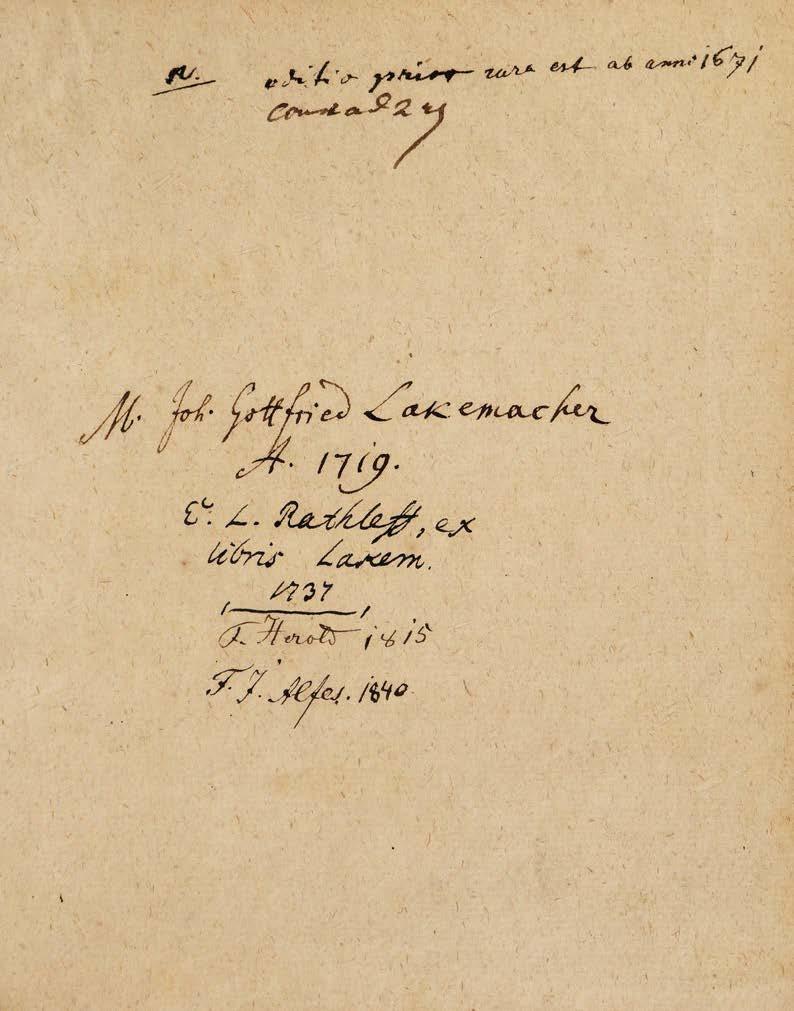 N. editio prior rara est ab anni 1671
M. Joh. Gottfried Lakemacher
A. 1719.
E. L. Rathleff, ex
libris Lakem.
1737
F. Herold 1815
F. J. Alfes. 1840